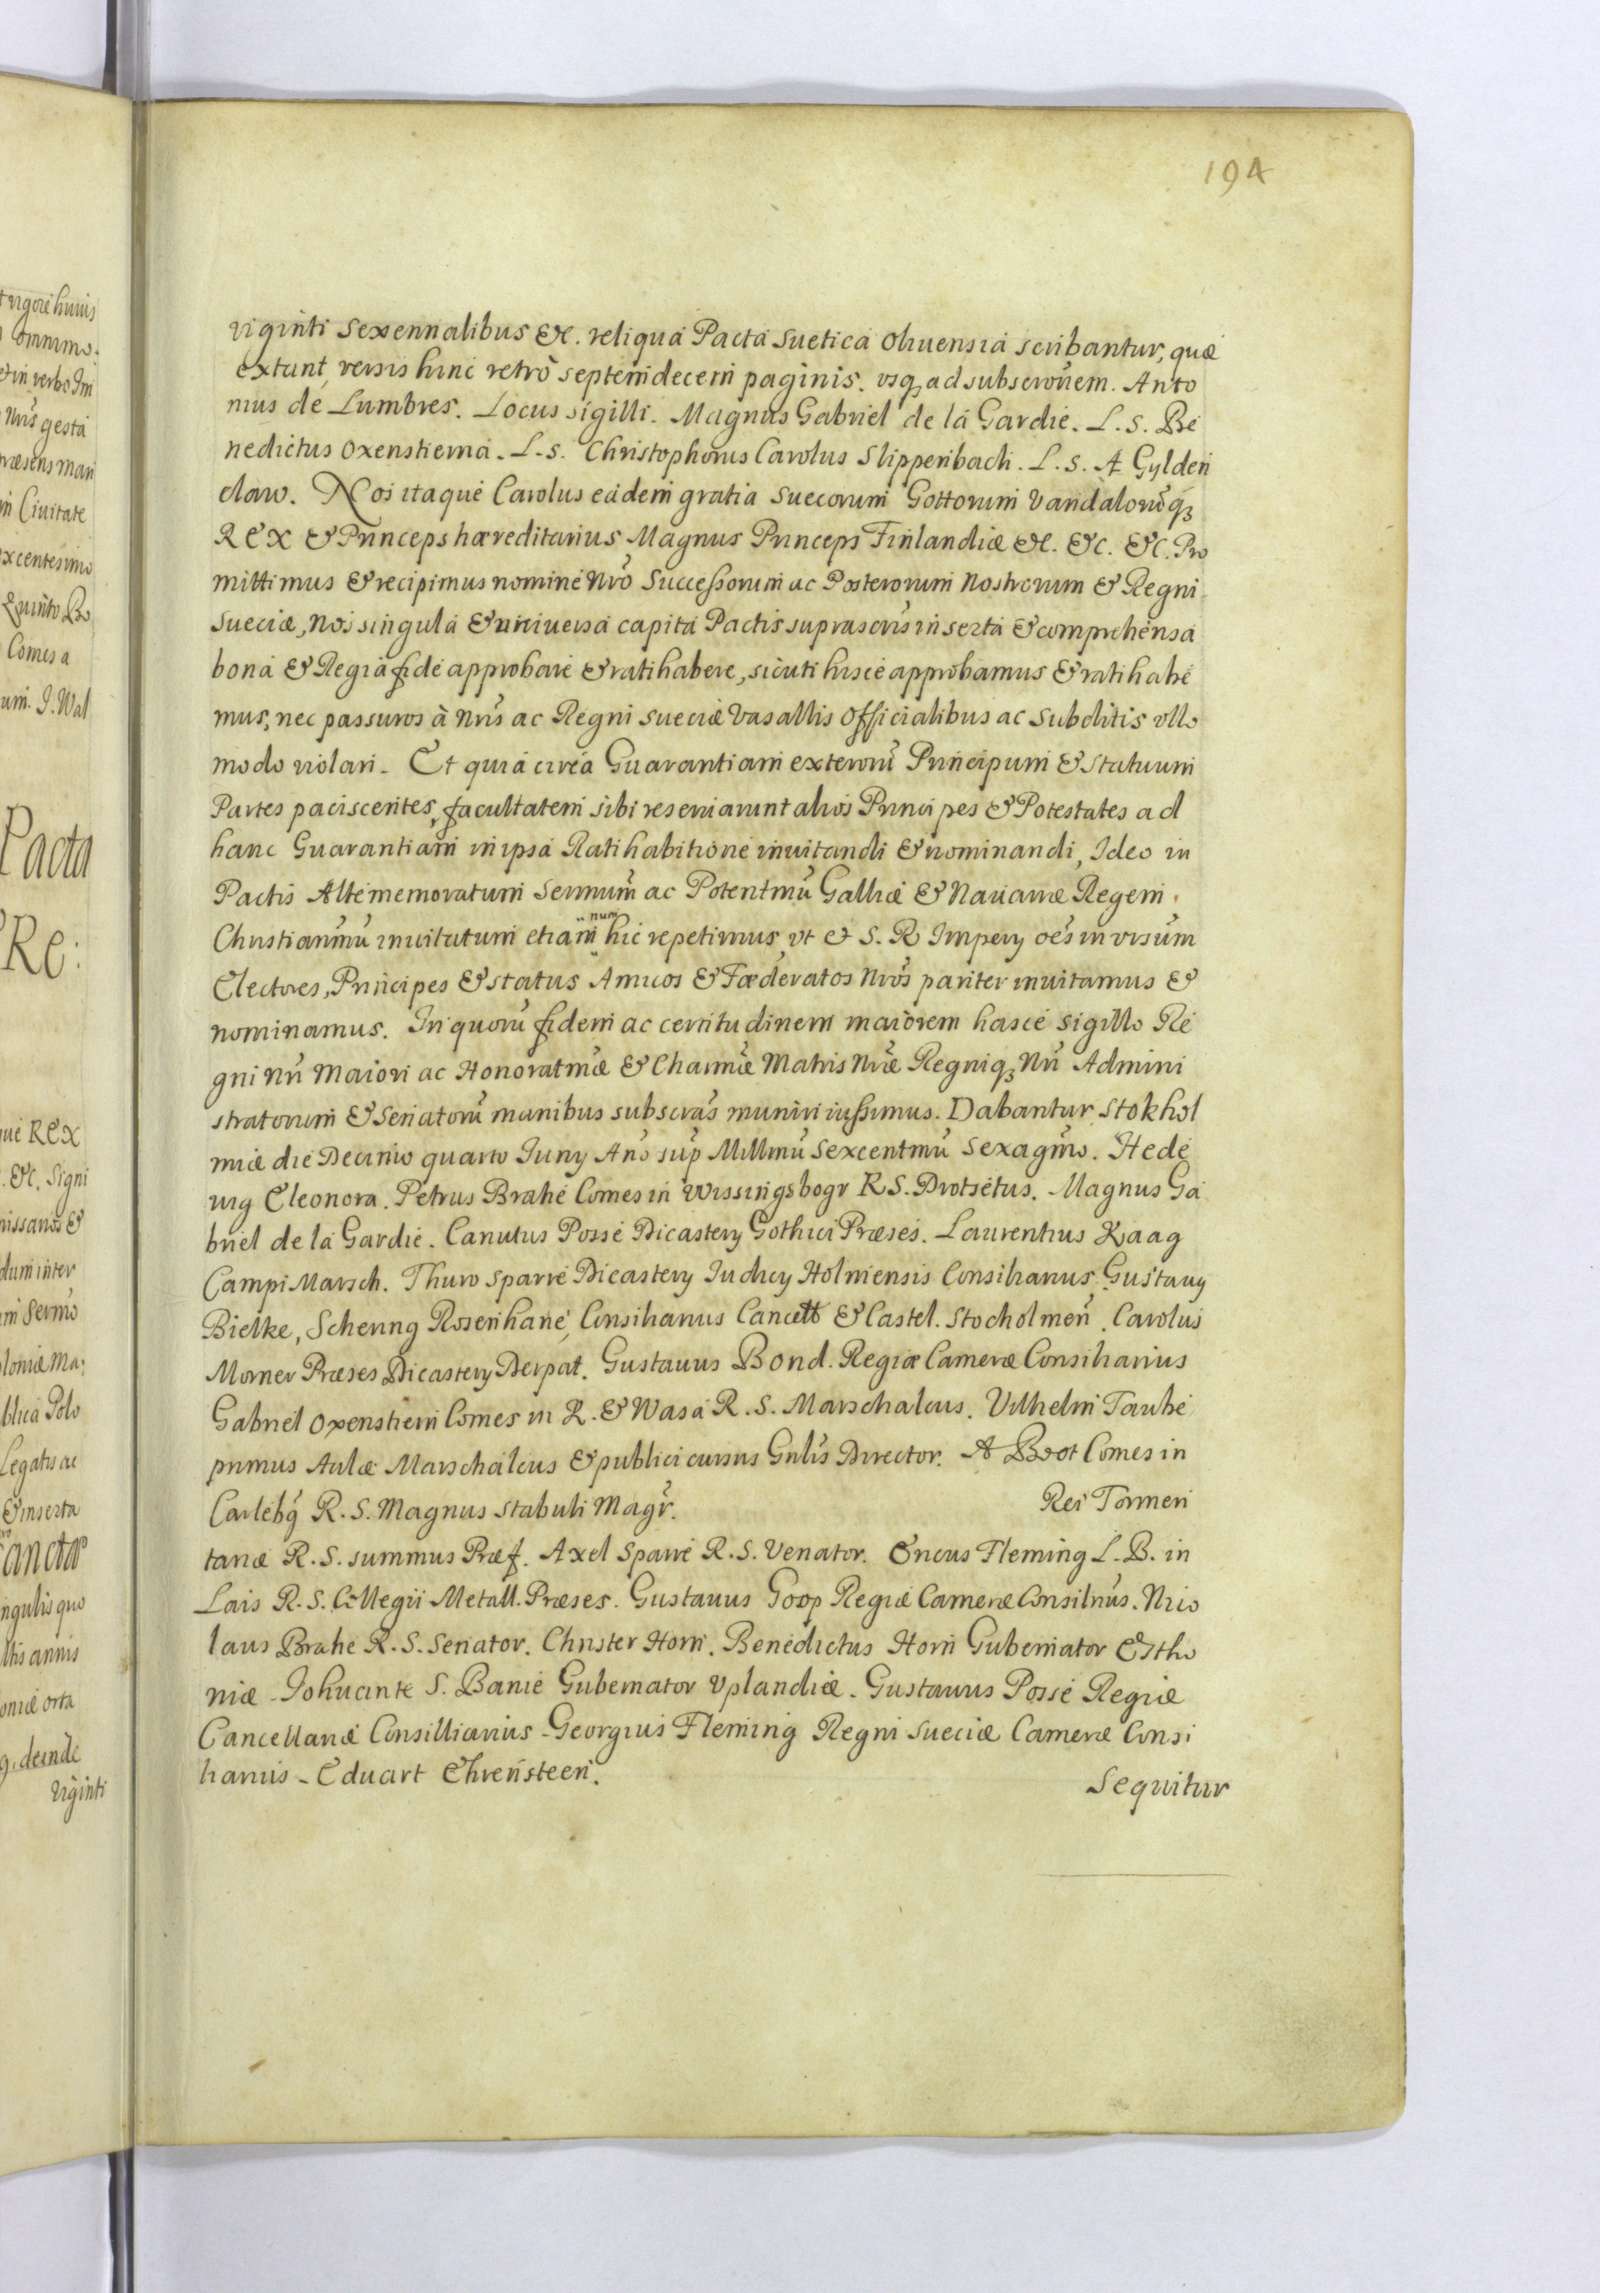 194
viginti sexennalibus &c. reliqua Pacta Suetica Oliuensia scribantur, quæ
extunt, versis hinc retrò septemdecem paginis. vsq ad subscrõnem. Anto
nius de Lumbres. Locus sigilli. Magnus Gabriel de la Gardie. L. S. Be
nedictus Oxenstierna. L. S. Christophorus Carolus Slippenbach. L. S. A Gylden
claw. Nos itaque Carolus eadem gratia Suecorum Gottorum Vandalorũq3
REX & Princeps hæreditarius Magnus Princeps Finlandiæ &c. &c. &c. Pro
mittimus & recipimus nomine Nrõ Successorum ac Posterorum Nostrorum & Regni
Sueciæ, Nos singula & uniuersa capita Pactis suprascris inserta & comprehensa
bona & Regia fide approbare & ratihabere, sicuti hisce approbamus & ratihabe
mus, nec passuros à Nris ac Regni Sueciæ Vasallis Officialibus ac Subditis vllo
modo violari. Et quia circa Guarantiam exterorũ Principum & Statuum
Partes paciscentes, facultatem sibi reseruarunt alios Principes & Potestates ad
hanc Guarantiam in ipsa Ratihabitione inuitandi & nominandi, Ideo in
Pactis Altememoratum Sermum ac Potentmũ Galliæ & Nauarræ Regem
Christianmũ inuitatum etiam num hic repetimus, vt & S. R Impery oẽs in vrsũm
Electores, Principes & Status Amicos & Fœderatos Nrõs pariter inuitamus &
nominamus. In quorũ fidem ac certitudinem maiorem hasce sigillo Re
gni Nri Maiori ac Honoratmæ & Charmæ Matris Nræ Regniq3 Nri Admini
stratorum & Senatorũ manibus subscras muniri iussimus. Dabantur Stokhol
miæ die Decimo quarto Iuny Anõ sup Millmũ Sexcentmũ Sexagmo. Hede
uig Eleonora. Petrus Brahe Comes in Wissingsbogr R S. Drotsetus. Magnus Ga
briel de la Gardie. Canutus Posse Dicastery Gothici Præses. Laurentius Kaag
Campi Marsch. Thuro Sparre Dicastery Iudicy Holmiensis Consiliarius. Gustauy
Bielke, Schering Rosenhane, Consiliarius Cancell & Castel. Stocholmen. Carolus
Morner Præses Dicastery Derpat. Gustauus Bond. Regiæ Cameræ Consiliarius
Gabriel Oxenstiern Comes in K. & Wasa R. S. Marschalcus. Vilhelm Taube
primus Aulæ Marschalcus & publici cursus Gnlis Director. A Brot Comes in
Carlebq R. S. Magnus stabuli Magr. Rei Tormen
tariæ R. S. summus Præf. Axel Sparre R. S. Venator. Ericus Fleming L. B. in
Lais R. S. Collegii Metall. Præses. Gustauus Goop Regiæ Cameræ Consilrius. Nico
laus Brahe R. S. Senator. Christer Horn. Benedictus Horn Gubernator Estho
niæ. Iohuante S. Banie Gubernator Vplandiæ. Gustauus Posse Regiæ
Cancellariæ Consilliarius. Georgius Fleming Regni Sueciæ Cameræ Consi
liarius. Eduart Ehrensteen.
Sequitur